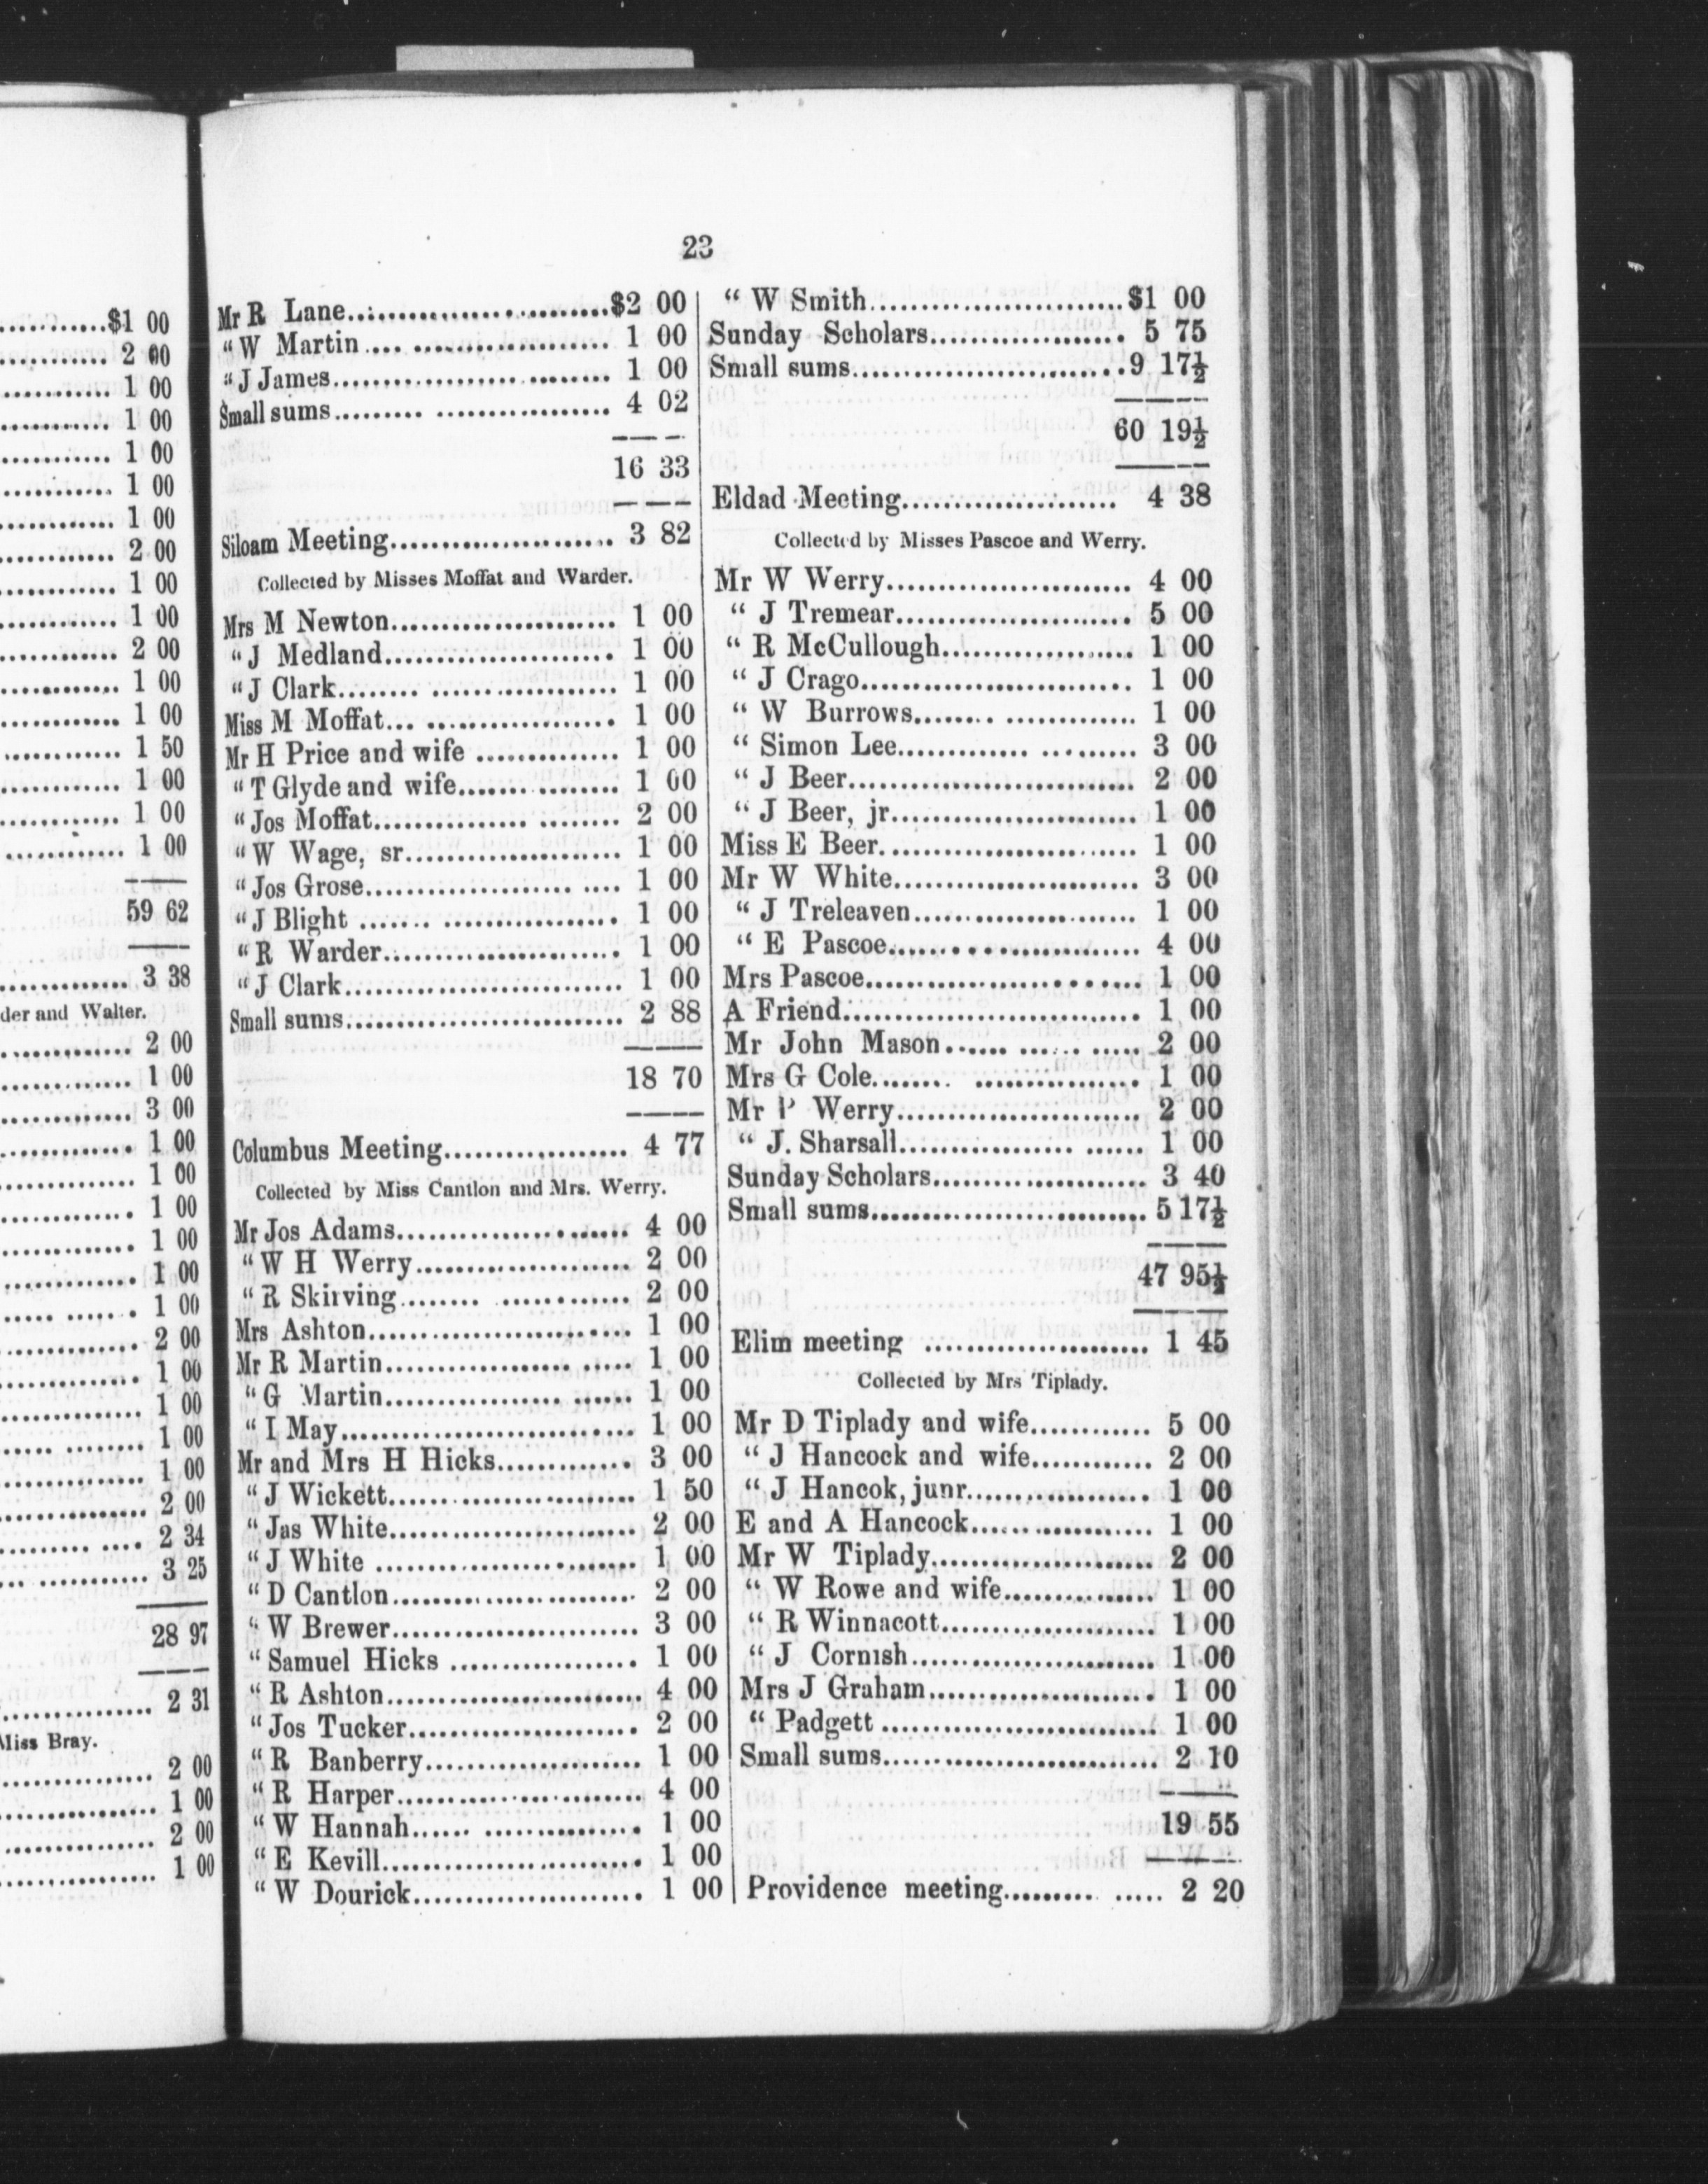 ...........$1 00
............ 2 00
............ 1 00
............ 1 00
............ 1 00
............ 1 00
............ 1 00
............ 2 00
............ 1 00
............ 1 00
............ 2 00
............ 1 00
............ 1 00
............ 1 50
............ 1 00
............ 1 00
............ 1 00
59 62
............. 3 38
der and Walter.
............. 2 00
............. 1 00
............. 3 00
............. 1 00
............. 1 00
............. 1 00
............. 1 00
............. 1 00
............. 1 00
............. 2 00
............. 1 00
............. 1 00
............. 1 00
............. 1 00
............. 2 00
......... .... 2 34
... ........... 3 25
28 97
............... 2 31
Miss Bray.
............... 2 00
............... 1 00
............... 2 00
............... 1 00
23
Mr R Lane..........................$2 00
" W Martin.... ................... 1 00
" J James........................... 1 00
Small sums......... ................. 4 02
16 33
Siloam Meeting...................... 3 82
Collected by Misses Moffat and Warder.
Mrs M Newton...................... 1 00
" J Medland....................... 1 00
" J Clark........ .................. 1 00
Miss M Moffat... .................. 1 00
Mr H Price and wife .............. 1 00
" T Glyde and wife....... ........ 1 00
" Jos Moffat............... ........ 2 00
" W Wage, sr..................... 1 00
" Jos Grose.................... .... 1 00
" J Blight ....... ................. 1 00
" R Warder....................... 1 00
" J Clark........................... 1 00
Small sums........................... 2 88
18 70
Columbus Meeting.................. 4 77
Collected by Miss Cantlon and Mrs. Werry.
Mr Jos Adams....................... 4 00
" W H Werry..................... 2 00
" R Skirving........ ............. 2 00
Mrs Ashton.......................... 1 00
Mr R Martin.................. ..... 1 00
" G Martin.................. ...... 1 00
" I May............................. 1 00
Mr and Mrs H Hicks............. 3 00
" J Wickett........................ 1 50
" Jas White........................ 2 00
" J White .......................... 1 00
" D Cantlon........................ 2 00
" W Brewer........................ 3 00
" Samuel Hicks .................. 1 00
" R Ashton......................... 4 00
" Jos Tucker....................... 2 00
" R Banberry..................... 1 00
" R Harper........................ 4 00
" W Hannah...... ............... 1 00
" E Kevill.......................... 1 00
" W Dourick...................... 1 00
" W Smith.........................$1 00
Sunday Scholars................... 5 75
Small sums...........................9 17½
60 19½
Eldad Meeting...................... 4 38
Collected by Misses Pascoe and Werry.
Mr W Werry........................ 4 00
" J Tremear....................... 5 00
" R McCullough................... 1 00
" J Crago.......................... 1 00
" W Burrows........ ............. 1 00
" Simon Lee............. .......... 3 00
" J Beer............................ 2 00
" J Beer, jr........................ 1 00
Miss E Beer.......................... 1 00
Mr W White........................ 3 00
" J Treleaven...................... 1 00
" E Pascoe......................... 4 00
Mrs Pascoe........................... 1 00
A Friend............................. 1 00
Mr John Mason...... ...... ..... 2 00
Mrs G Cole........ ................ 1 00
Mr P Werry........................ 2 00
" J. Sharsall................. ...... 1 00
Sunday Scholars..................... 3 40
Small sums........................... 5 17½
47 95½
Elim meeting ...................... 1 45
Collected by Mrs Tiplady.
Mr D Tiplady and wife............ 5 00
" J Hancock and wife............ 2 00
" J Hancok, junr.................. 1 00
E and A Hancock.................. 1 00
Mr W Tiplady...................... 2 00
" W Rowe and wife............... 1 00
" R Winnacott..................... 1 00
" J Cornish........................ 1 00
Mrs J Graham...................... 1 00
" Padgett ........................... 1 00
Small sums........................... 2 10
19 55
Providence meeting......... ..... 2 20